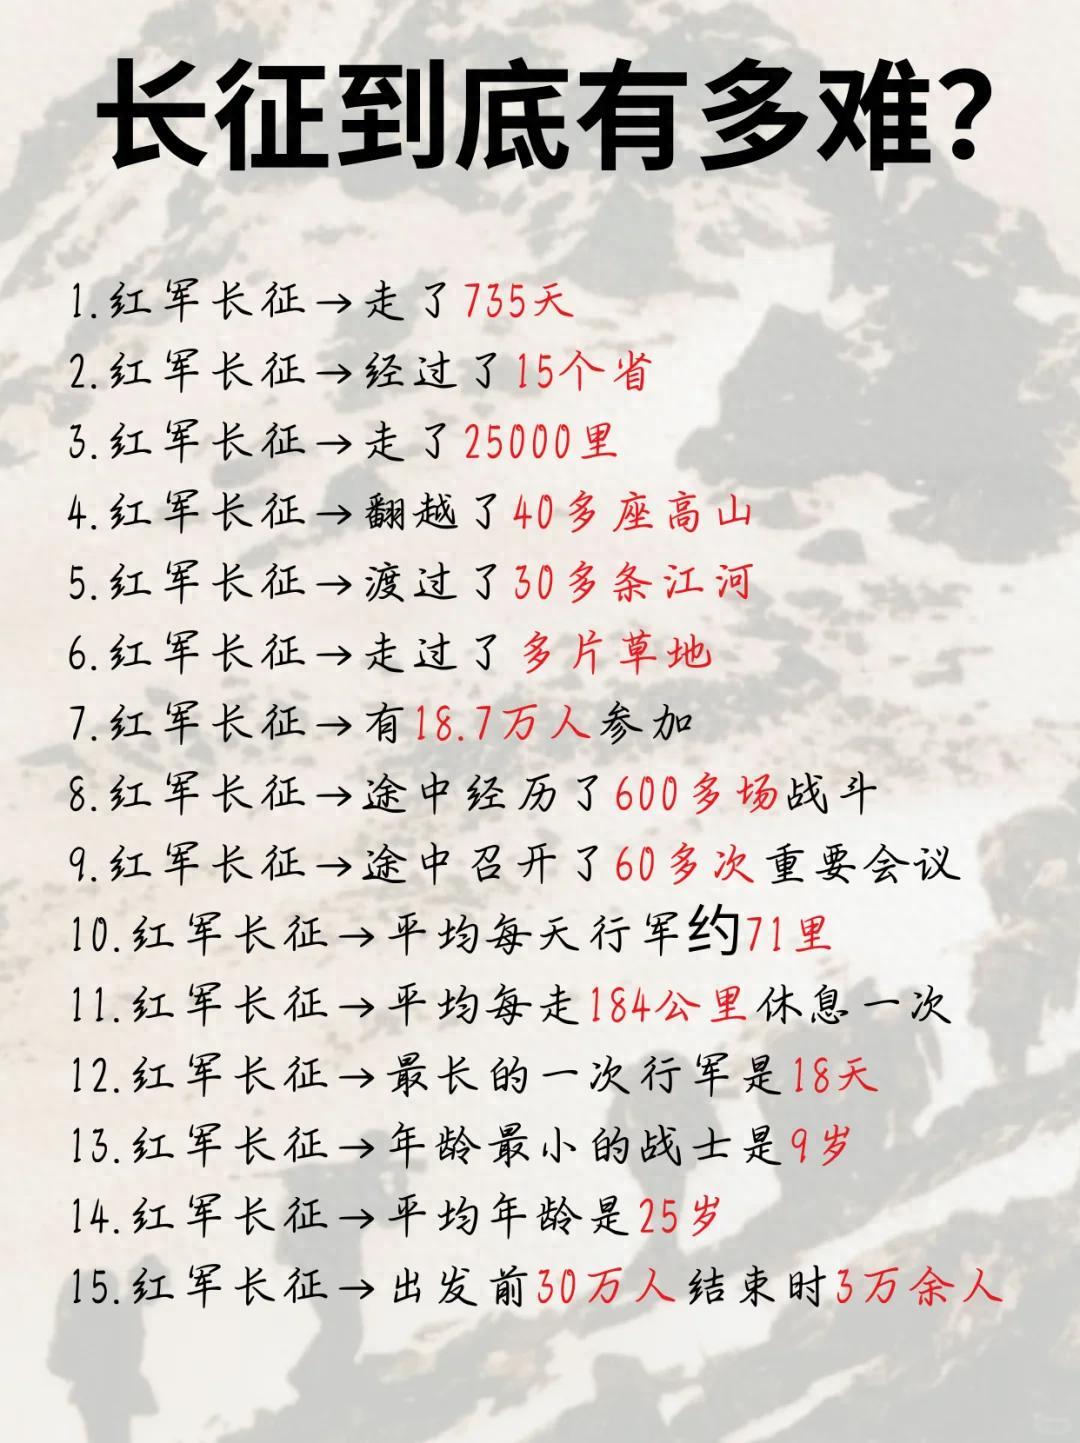 长征到底有多难？
1.红军长征→走了735天
2.红军长征→经过了15个省
3.红军长征→走了25000里
4.红军长征→翻越了40多座高山
5.红军长征→渡过了30多条江河
6.红军长征→走过了 多片草地
7.红军长征→有18.7万人参加
8.红军长征→途中经历了600多场战斗
9.红军长征→途中召开了60多次重要会议
10.红军长征→平均每天行军约71里
11.红军长征→平均每走184公里休息一次
12.红军长征→最长的一次行军是18天
13.红军长征→年龄最小的战士是9岁
14.红军长征→平均年龄是25岁
15.红军长征→出发前30万人结束时3万余人